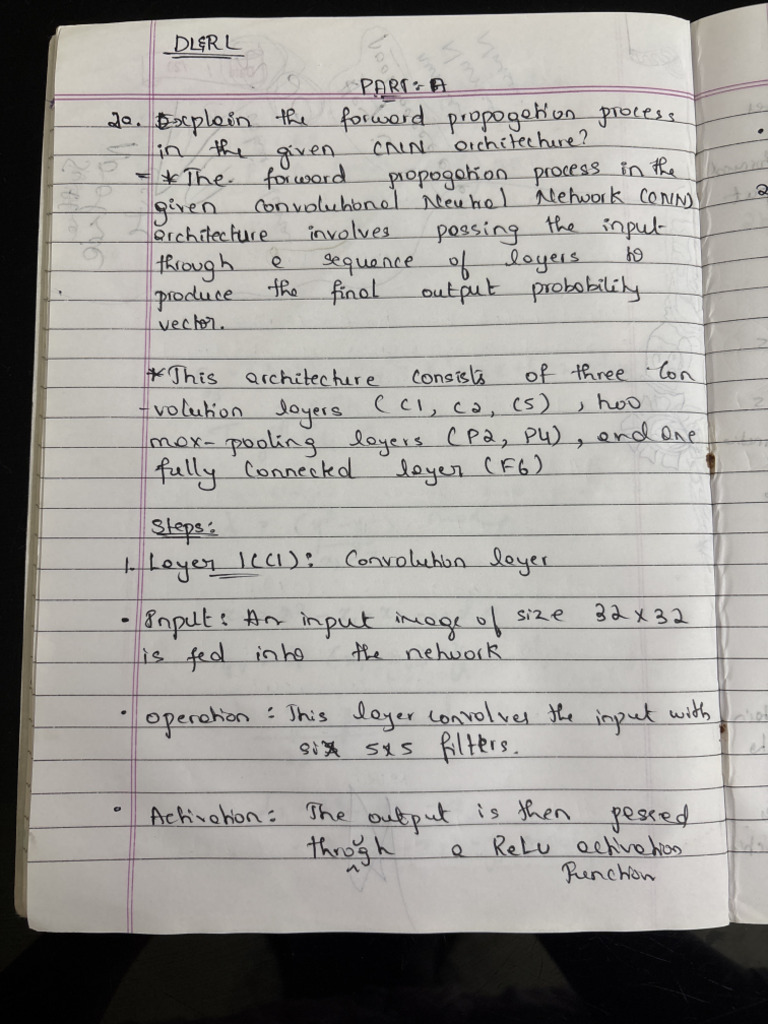 DL&RL
PART: A
2a. Explain the forward propogation process
in the given CNN architecture?
- * The forward propogation process in the
given convolutional Neural Network (CNN)
architecture involves passing the input
through a sequence of layers to
produce the final output probability
vector.
* This architecture consists of three Con
-volution layers (C1, C2, C5), two
max-pooling layers (P2, P4), and One
fully Connected layer (F6)
Steps:
1. Layer 1(C1): Convolution layer
• Input: An input image of size 32x32
is fed into the network
• operation: This layer convolves the input with
six 5x5 filters.
• Activation: The output is then passed
through a ReLu activation
Function